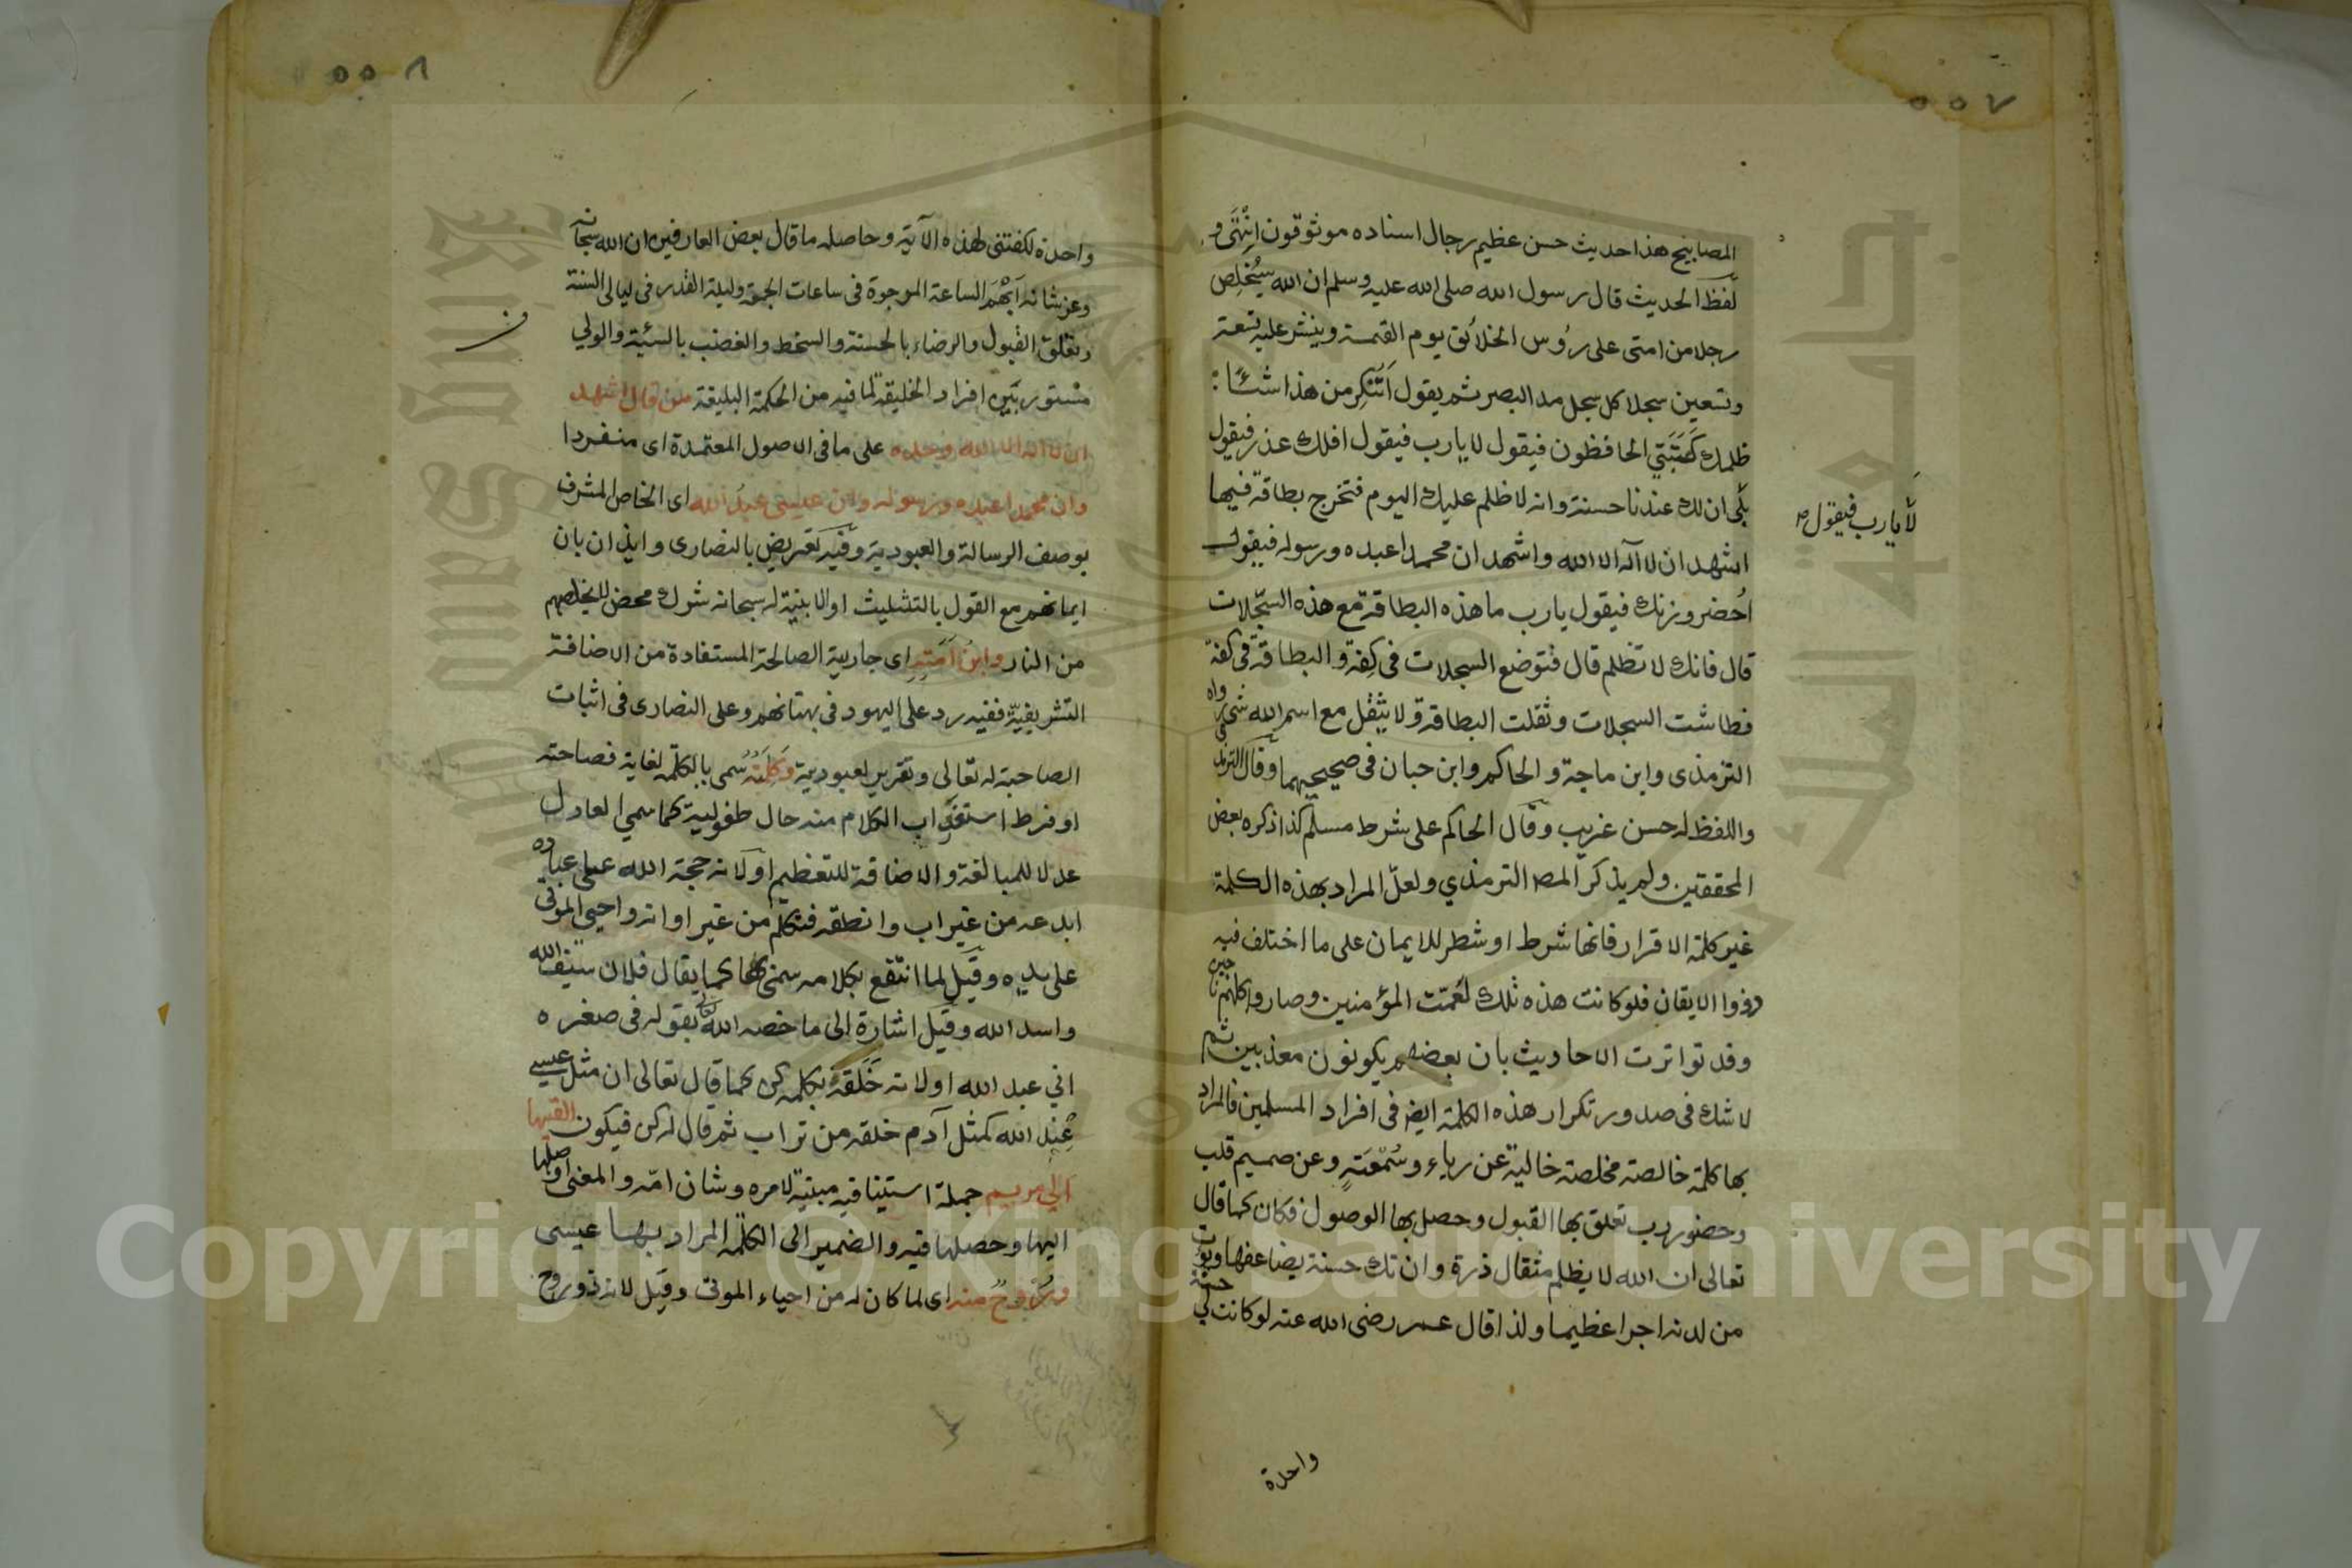 ٥٥٧
المصابيح هذا حديث حسن عظيم رجال اسناده موثوقون انتهى و
لفظ الحديث قال رسول الله صلى الله عليه وسلم ان الله سيُخلِص
رجلا من امتى على رؤس الخلائق يوم القيمة وينشر عليه تسعة
وتسعين سجلا كل سجل مد البصر ثم يقول اَتُنكِر من هذا شئًا
ظلمك كَتَبَتي الحافظون فيقول لا يارب فيقول افلك عذر فيقول
لا يارب فيقول
بلى ان لك عندنا حسنة وانه لا ظلم عليك اليوم فتخرج بطاقة فيها
اشهد ان لا اله الا الله واشهد ان محمدا عبده ورسوله فيقول
اُحضر وزنك فيقول يارب ما هذه البطاقة مع هذه السجّلات
قال فانك لا تظلم قال فتوضع السجلات فى كِفة والبطاقة فى كفة
فطاشت السجلات وثقلت البطاقة ولا يثقل مع اسم الله شئ رواه
الترمذى وابن ماجة والحاكم وابن حبان فى صحيحيهما وقال الترمذى
واللفظ له حسن غريب وقال الحاكم على شرط مسلم كذا ذكره بعض
المحققين ولم يذكر المص الترمذي ولعلّ المراد بهذه الكلمة
غير كلمة الاقرار فانها شرط او شطر للايمان على ما اختلف فيه
ذووا الايقان فلو كانت هذه تلك لعُمّت المؤمنين وصاروا كلهم ناجين
وقد تواترت الاحاديث بان بعضهم يكونون معذبين ثم
لا شك فى صدور تكرار هذه الكلمة ايض فى افراد المسلمين فالمراد
بها كلمة خالصة مخلصة خالية عن رياء وسُمْعَةٍ وعن صميم قلب
وحضور رب تعلق بها القبول وحصل بها الوصول فكان كما قال
تعالى ان الله لا يظلم مثقال ذرة وان تك حسنة يضاعفها ويؤت
من لدنه اجرا عظيما ولذا قال عمر رضى الله عنه لو كانت لي حسنة
واحدة
٥٥٨
واحدة لكفتنى لهذه الآية وحاصله ما قال بعض العارفين ان الله سبحانه
وعز شانه اَبْهَمَ الساعة المرجوة فى ساعات الجمعة وليلة القدر فى ليالى السنة
وتعلق القبول والرضاء بالحسنة والسخط والغضب بالسيئة والولي
مستور بين افراد الخليقة لما فيه من الحكمة البليغة من قال اشهد
ان لا اله الا الله وحده على ما فى الاصول المعتمدة اى منفردا
وان محمدا عبده ورسوله وان عيسى عبدُ الله اى الخاص المشرف
بوصف الرسالة والعبودية وفيه تعريض بالنصارى وايذان بان
ايمانهم مع القول بالتثليث او الابنية له سبحانه شرك محض لا يخلصهم
من النار وابن اَمَتِهِ اى جاريته الصالحة المستفادة من الاضافة
التشريفيّة ففيه رد على اليهود فى بهتانهم وعلى النصارى فى اثبات
الصاحبة له تعالى وتقرير لعبوديته وَكَلِمَتُهُ سُمى بالكلمة لغاية فصاحته
او فرط استغراب الكلام منه حال طفوليته كما سمي العادل
عدلا للمبالغة والاضافة للتعظيم او لانه حجة الله على عباده
ابدعه من غير اب وانطقه فتكلم من غير اوانه واحيى الموتى
على يده وقيل لما انتفع بكلامه سمى بها كما يقال فلان سيف الله
واسد الله وقيل اشارة الى ما خصه الله تعالى بقوله فى صغره
اني عبد الله او لانه خَلَقَهُ بكلمة كن كما قال تعالى ان مثل عيسى
عِنْد الله كمثل آدم خلقه من تراب ثم قال له كن فيكون القيها
الى مريم جملة استينافيه مبنية لامره وشان امّه والمعنى اوصلها
اليها وحصلها فيه والضمير الى الكلمة المراد بها عيسى
ورُوحٌ منه اى لما كان له من احياء الموتى وقيل لانه ذو روح